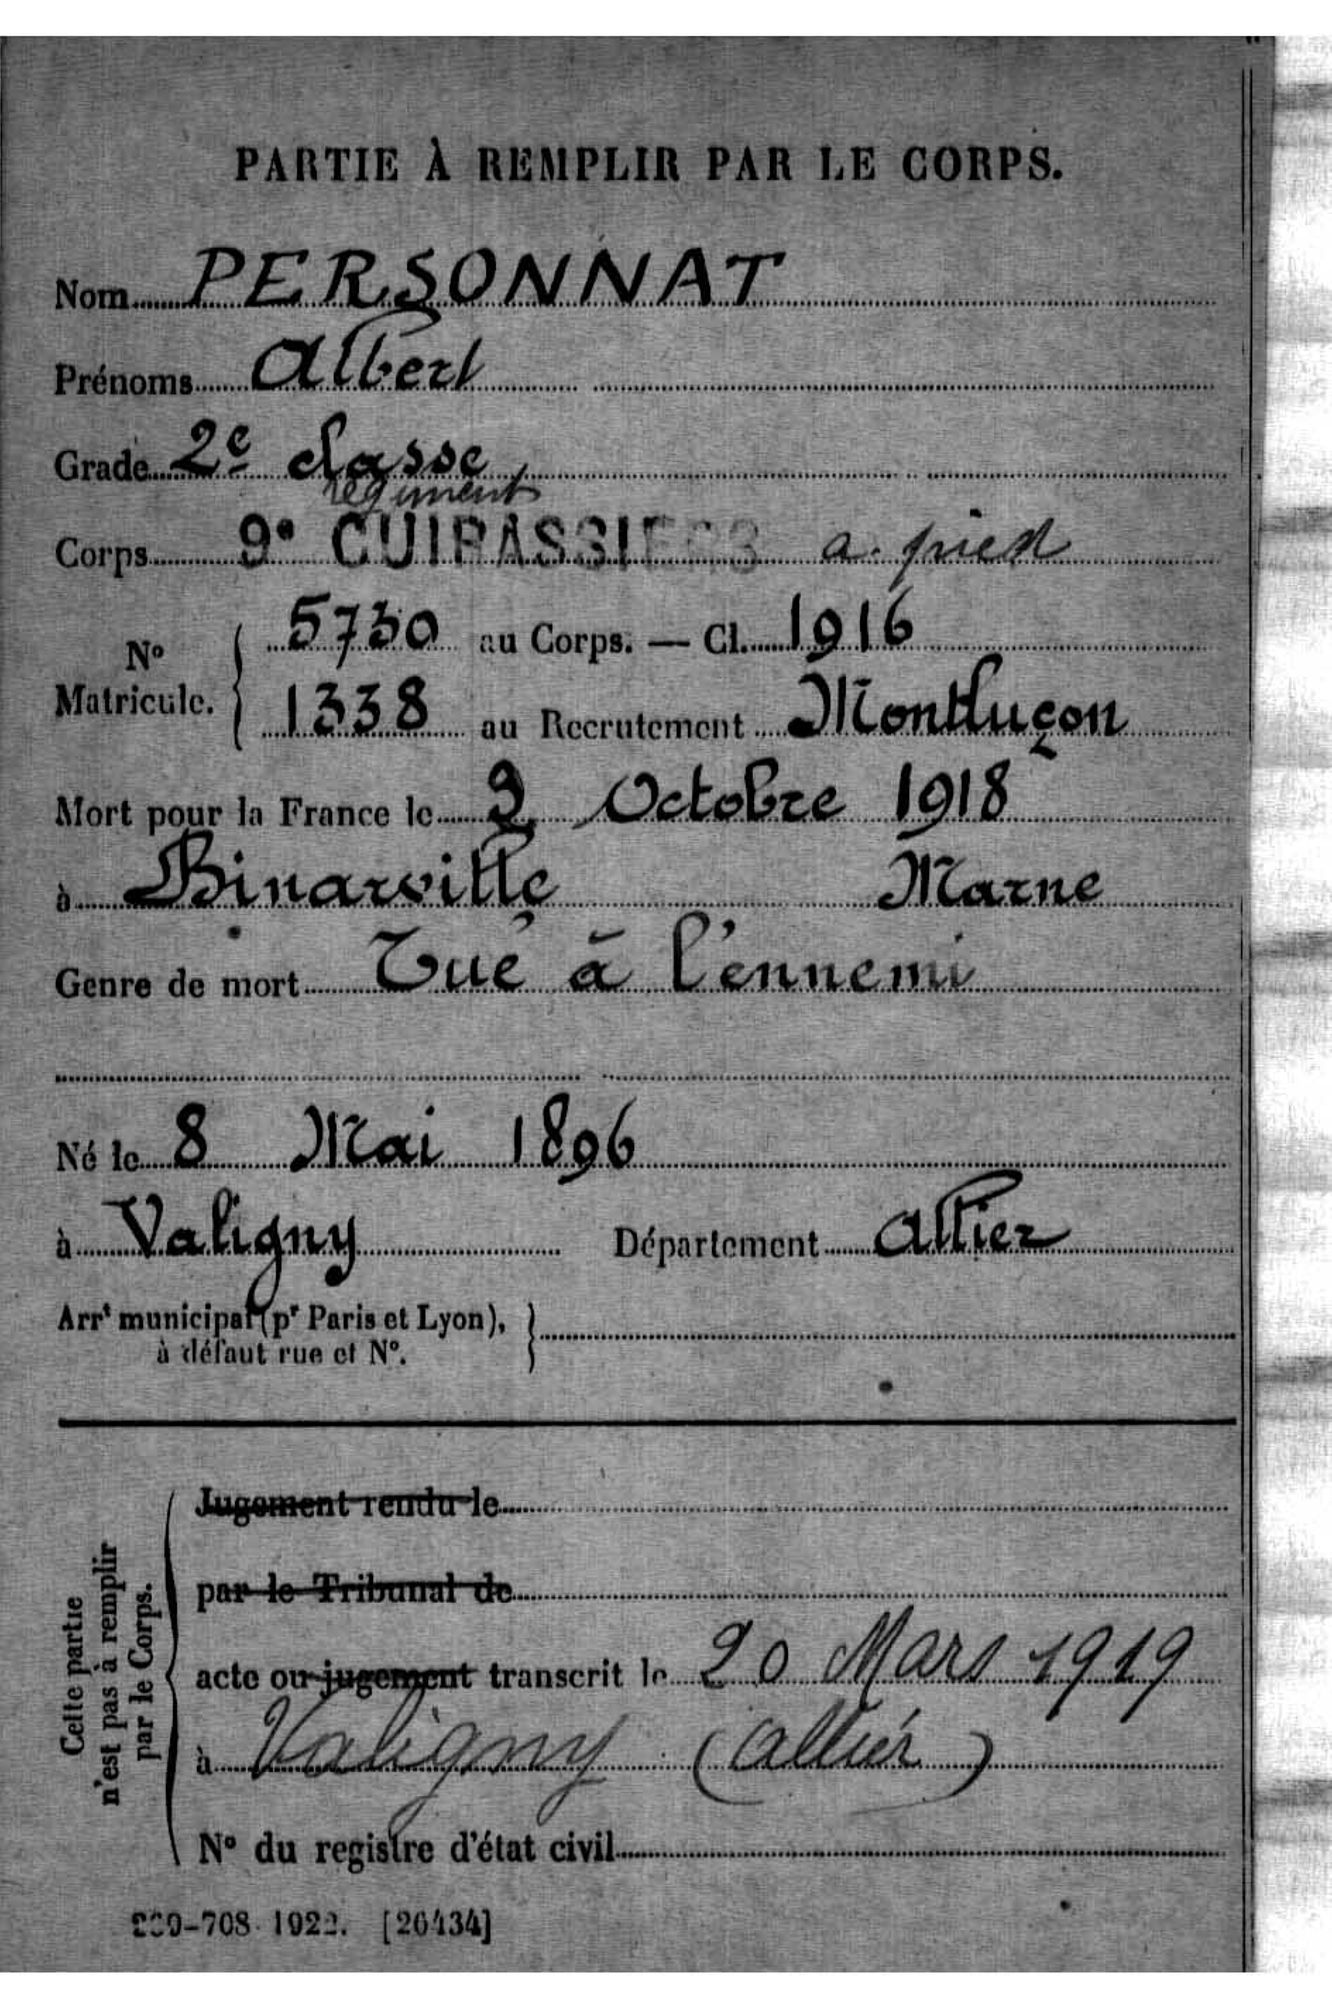 PARTIE À REMPLIR PAR LE CORPS.
Nom PERSONNAT
Prénoms Albert
Grade 2e classe
régiment
Corps 9e CUIRASSIERS à pied
No Matricule. { 5730 au Corps. — Cl. 1916
1338 au Recrutement Montluçon
Mort pour la France le Octobre 1918
à Binarville Marne
Genre de mort Tué à l'ennemi
Né le 8 Mai 1896
à Valigny Département Allier
Arrt municipal (pr Paris et Lyon),
à défaut rue et No.
Cette partie
n'est pas à remplir
par le Corps.
Jugement rendu le
par le Tribunal de
acte ou jugement transcrit le 20 Mars 1919
à Valigny (Allier)
No du registre d'état civil
-708-1922. [26434]